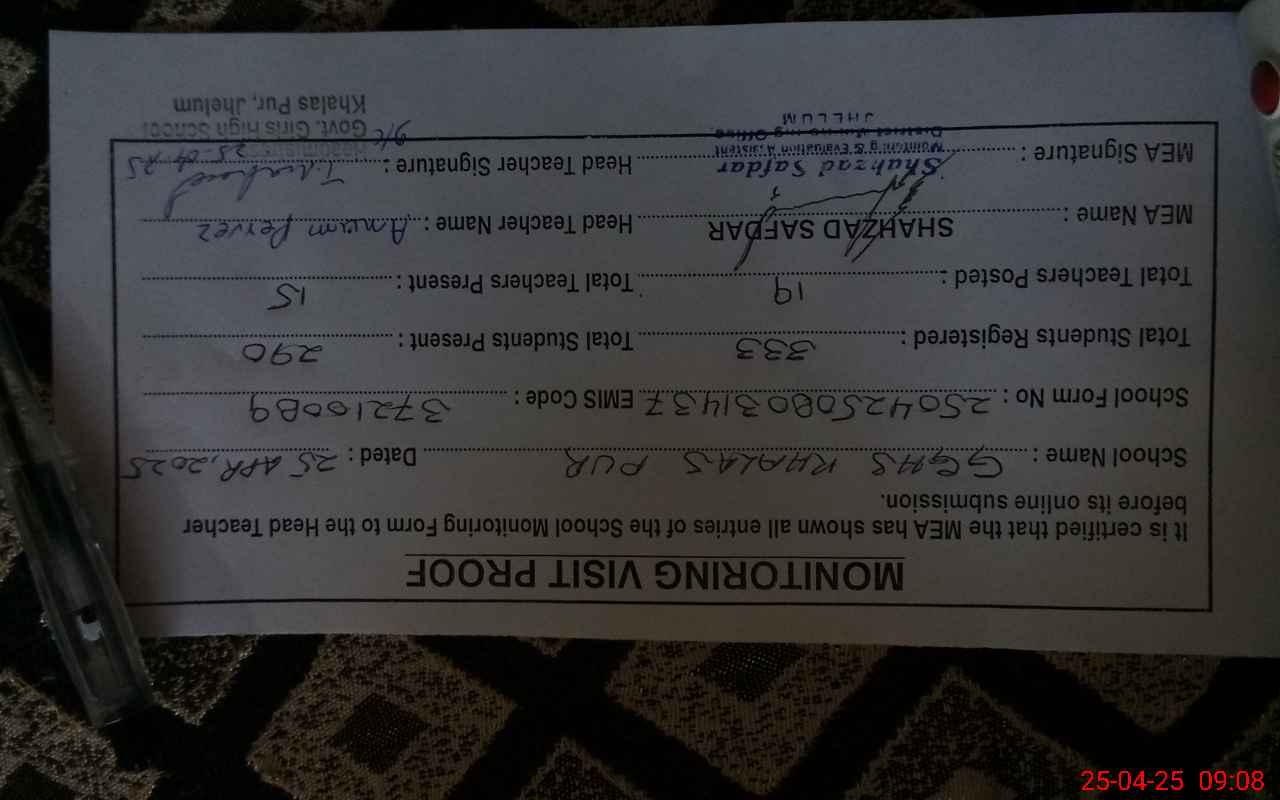 MONITORING VISIT PROOF
It is certified that the MEA has shown all entries of the School Monitoring Form to the Head Teacher
before its online submission.
School Name : GGHS KHALAS PUR Dated : 25 APR, 2025
School Form No : 250425080031437 EMIS Code : 37210089
Total Students Registered : 333 Total Students Present : 290
Total Teachers Posted : 19 Total Teachers Present : 15
MEA Name : SHAHZAD SAFDAR Head Teacher Name : Anum Pervez
MEA Signature : Shahzad Safdar Head Teacher Signature : 25-04-25
Monitoring & Evaluation Assistant
District Monitoring Office
JHELUM
Headmistress
Govt. Girls High School
Khalas Pur, Jhelum
25-04-25 09:08